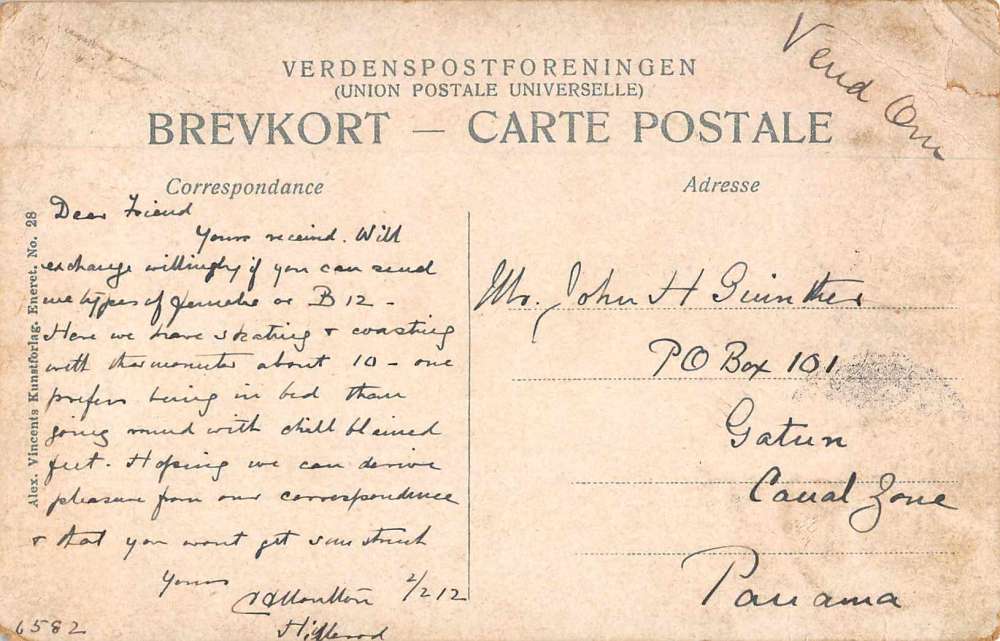 Vend Om
VERDENSPOSTFORENINGEN
(UNION POSTALE UNIVERSELLE)
BREVKORT — CARTE POSTALE
Correspondance
Adresse
Alex. Vincents Kunstforlag. Eneret. No. 28
Dear Friend
Yours received. Will
exchange willingly if you can send
me types of females or B 12 -
Here we have skating & coasting
with thermometer about 10 - one
prefers being in bed than
going round with chill blained
feet. Hoping we can derive
pleasure from our correspondence
& that you wont get sun struck
Yours
2/2 12
Hillerod
6582
Mr. John H Guinther
PO Box 101
Gatun
Canal Zone
Panama